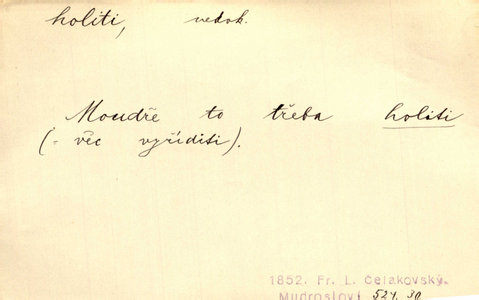 holiti, nedok.
Moudře to třeba holiti
(= věc vyříditi).
1852. Fr. L. Čelakovský.
Mudrosloví 524. 30